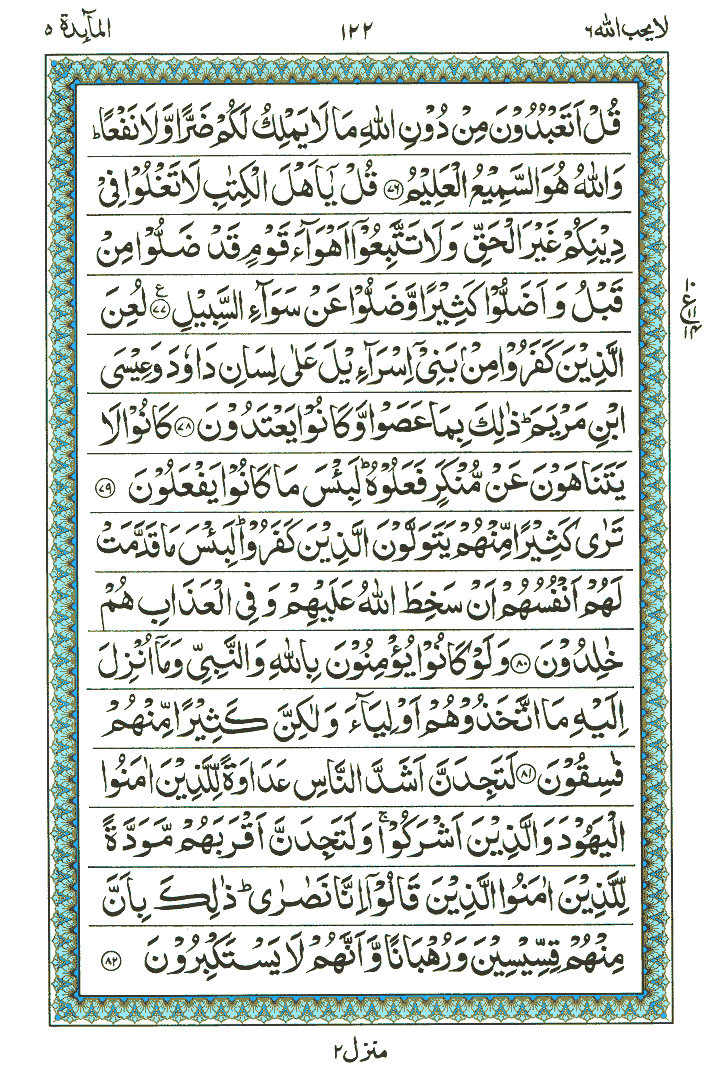 لا یحب الله ٦ ١٢٢ المآئدة ٥
قُلْ اَتَعْبُدُوْنَ مِنْ دُوْنِ اللّٰهِ مَا لَا یَمْلِكُ لَكُمْ ضَرًّا وَّلَا نَفْعًا ؕ
وَاللّٰهُ هُوَ السَّمِیْعُ الْعَلِیْمُ ﴿٧٦﴾ قُلْ یٰۤاَهْلَ الْكِتٰبِ لَا تَغْلُوْا فِیْ
دِیْنِكُمْ غَیْرَ الْحَقِّ وَلَا تَتَّبِعُوْۤا اَهْوَآءَ قَوْمٍ قَدْ ضَلُّوْا مِنْ
قَبْلُ وَ اَضَلُّوْا كَثِیْرًا وَّضَلُّوْا عَنْ سَوَآءِ السَّبِیْلِ ﴿٧٧﴾ ع لُعِنَ
١٠
ع ١١
١٤
الَّذِیْنَ كَفَرُوْا مِنْۢ بَنِیْۤ اِسْرَآءِیْلَ عَلٰی لِسَانِ دَاوٗدَ وَعِیْسَی
ابْنِ مَرْیَمَ ؕ ذٰلِكَ بِمَا عَصَوْا وَّكَانُوْا یَعْتَدُوْنَ ﴿٧٨﴾ كَانُوْا لَا
یَتَنَاهَوْنَ عَنْ مُّنْكَرٍ فَعَلُوْهُ ؕ لَبِئْسَ مَا كَانُوْا یَفْعَلُوْنَ ﴿٧٩﴾
تَرٰی كَثِیْرًا مِّنْهُمْ یَتَوَلَّوْنَ الَّذِیْنَ كَفَرُوْا ؕ لَبِئْسَ مَا قَدَّمَتْ
لَهُمْ اَنْفُسُهُمْ اَنْ سَخِطَ اللّٰهُ عَلَیْهِمْ وَ فِی الْعَذَابِ هُمْ
خٰلِدُوْنَ ﴿٨٠﴾ وَ لَوْ كَانُوْا یُؤْمِنُوْنَ بِاللّٰهِ وَ النَّبِیِّ وَ مَاۤ اُنْزِلَ
اِلَیْهِ مَا اتَّخَذُوْهُمْ اَوْلِیَآءَ وَ لٰكِنَّ كَثِیْرًا مِّنْهُمْ
فٰسِقُوْنَ ﴿٨١﴾ لَتَجِدَنَّ اَشَدَّ النَّاسِ عَدَاوَةً لِّلَّذِیْنَ اٰمَنُوا
الْیَهُوْدَ وَ الَّذِیْنَ اَشْرَكُوْا ۚ وَ لَتَجِدَنَّ اَقْرَبَهُمْ مَّوَدَّةً
لِّلَّذِیْنَ اٰمَنُوا الَّذِیْنَ قَالُوْۤا اِنَّا نَصٰرٰی ؕ ذٰلِكَ بِاَنَّ
مِنْهُمْ قِسِّیْسِیْنَ وَ رُهْبَانًا وَّ اَنَّهُمْ لَا یَسْتَكْبِرُوْنَ ﴿٨٢﴾
منزل ٢